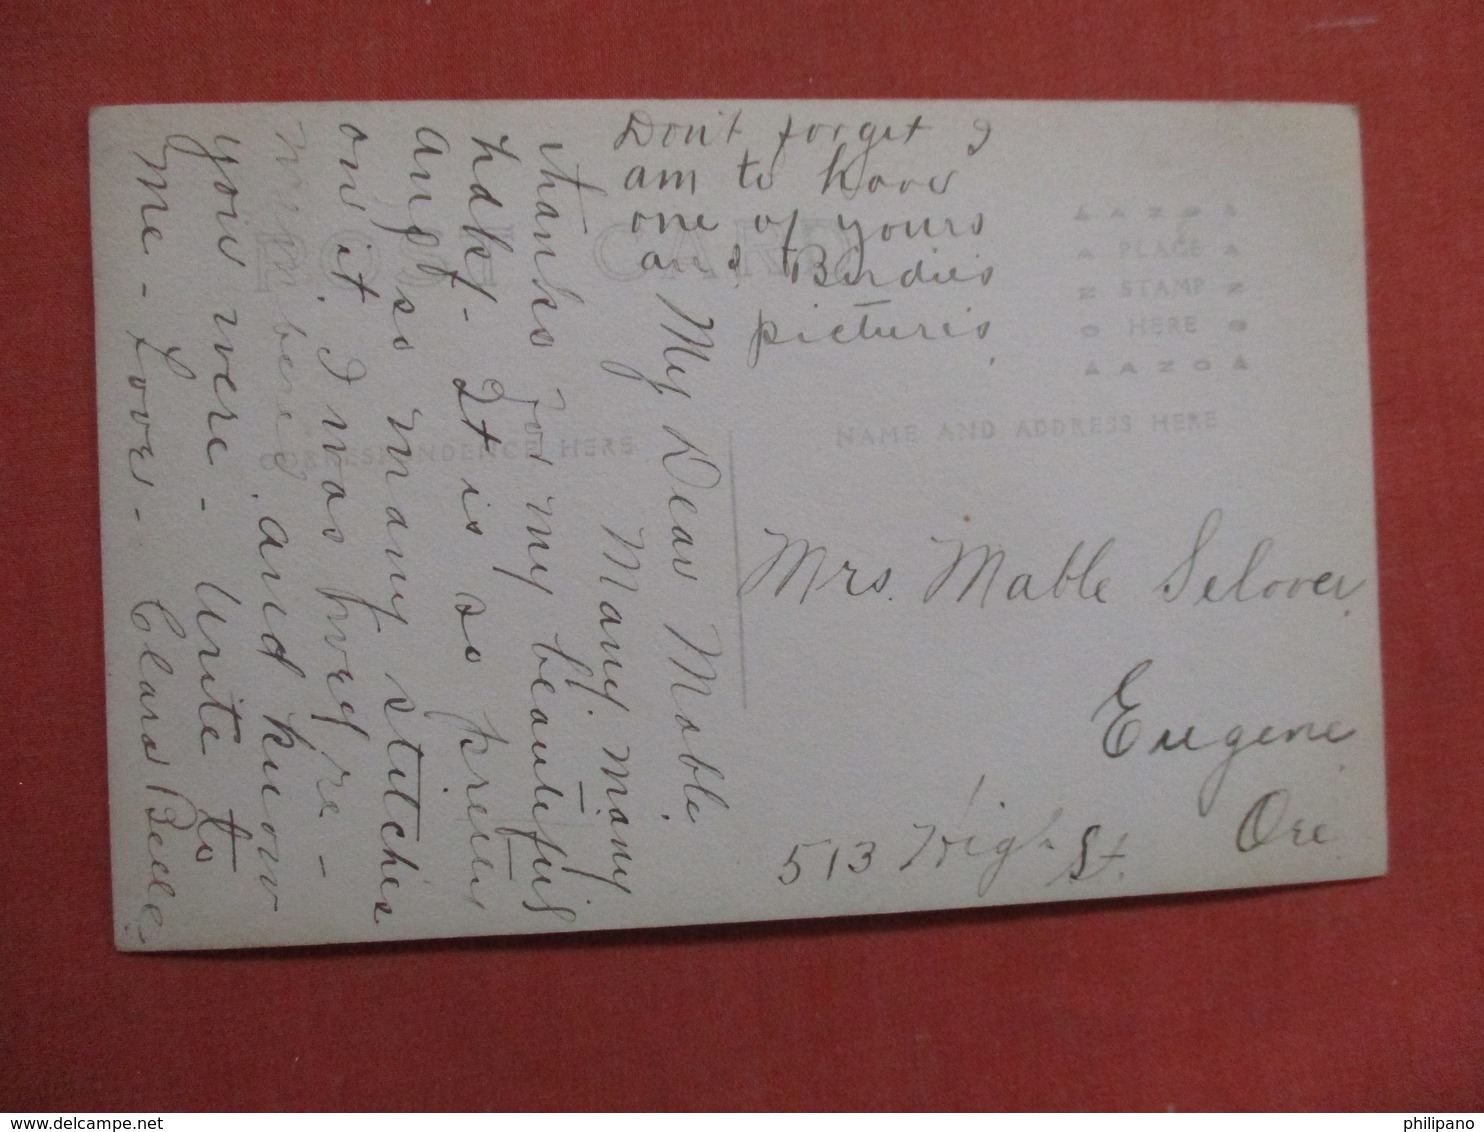 Don't forget I
am to have
one of yours
and Birdie's
pictures
My Dear Mable.
Many many
thanks for my beautiful
hdkf- It is so pretty
and so many stitches
on it. I was hoping
and know
you were - Write to
me - Love - Clara Belle
POST CARD
CORRESPONDENCE HERE
AZO
PLACE
STAMP
HERE
AZO
NAME AND ADDRESS HERE
Mrs. Mable Selover
Eugene
Ore
513 High St.
www.delcampe.net
philipano